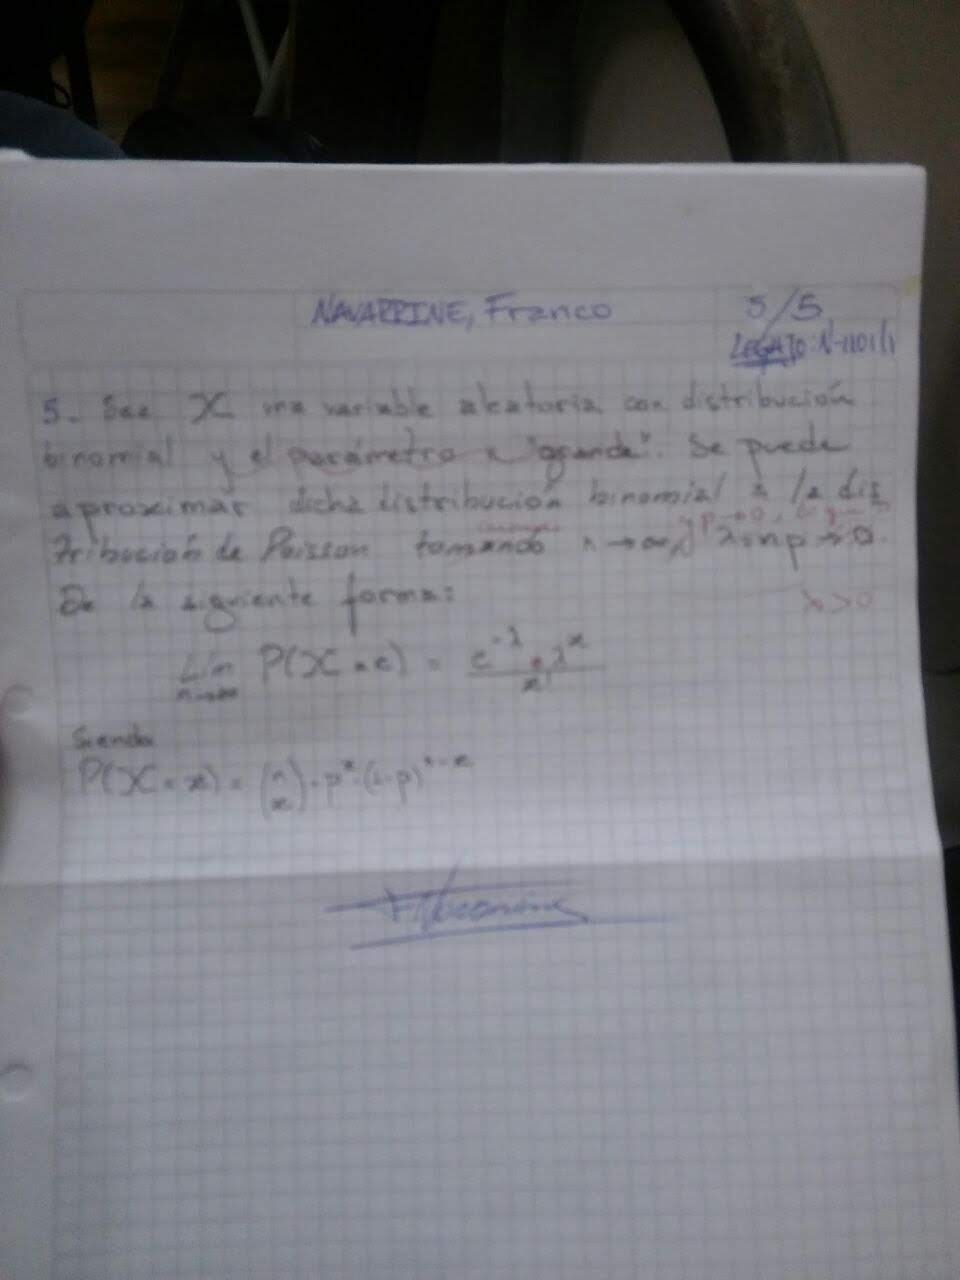 NAVARRINE, Franco
5/5
LEGAJO: N-1101/1
5- Sea X una variable aleatoria con distribución
binomial y el parámetro n "grande". Se puede
aproximar dicha distribución binomial a la dis
y p→0,
tribución de Poisson tomando n→∞ λ=np→0.
De la siguiente forma: λ>0
Lim P(X=x) = e^-λ . λ^x
n→∞ x!
Siendo
P(X=x) = (n x) . p^x . (1-p)^n-x